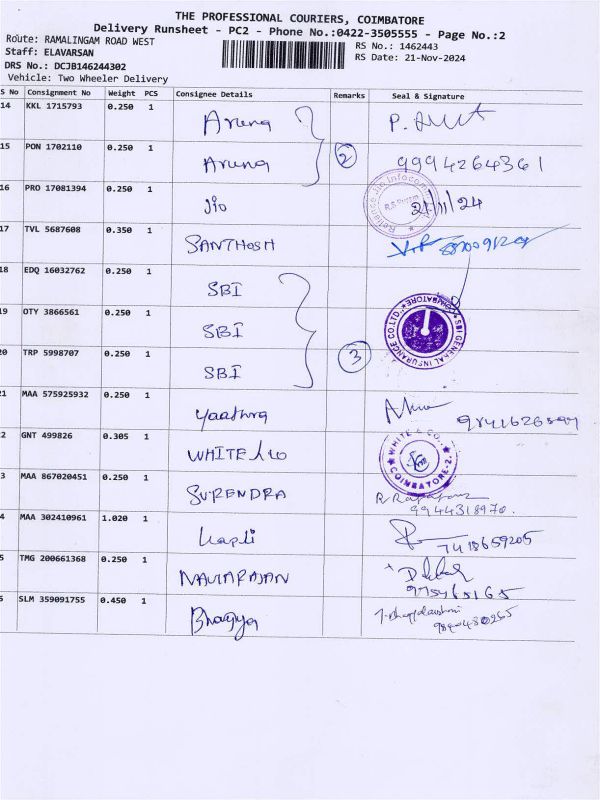 THE PROFESSIONAL COURIERS, COIMBATORE
Delivery Runsheet - PC2 - Phone No.:0422-3505555 - Page No.:2
Route: RAMALINGAM ROAD WEST
Staff: ELAVARSAN
RS No.: 1462443
DRS No.: DCJB146244302
RS Date: 21-Nov-2024
Vehicle: Two Wheeler Delivery
S No Consignment No Weight PCS Consignee Details Remarks Seal & Signature
14 KKL 1715793 0.250 1 Aruna
15 PON 1702110 0.250 1 Aruna 2 9994264361
16 PRO 17081394 0.250 1 Jio Reliance Jio Infocomm 21/11/24
17 TVL 5687608 0.350 1 SANTHOSH
18 EDQ 16032762 0.250 1 SBI
19 OTY 3866561 0.250 1 SBI SBI GENERAL INSURANCE CO.LTD., COIMBATORE
20 TRP 5998707 0.250 1 SBI 3
21 MAA 575925932 0.250 1 Yaathra
2 GNT 499826 0.305 1 WHITE & CO WHITE & CO., COIMBATORE-2.
3 MAA 867020451 0.250 1 SURENDRA 9944318970.
4 MAA 302410961 1.020 1 Kapil 7418659205
5 TMG 200661368 0.250 1 NAVARAJAN
SLM 359091755 0.450 1 Bhagya